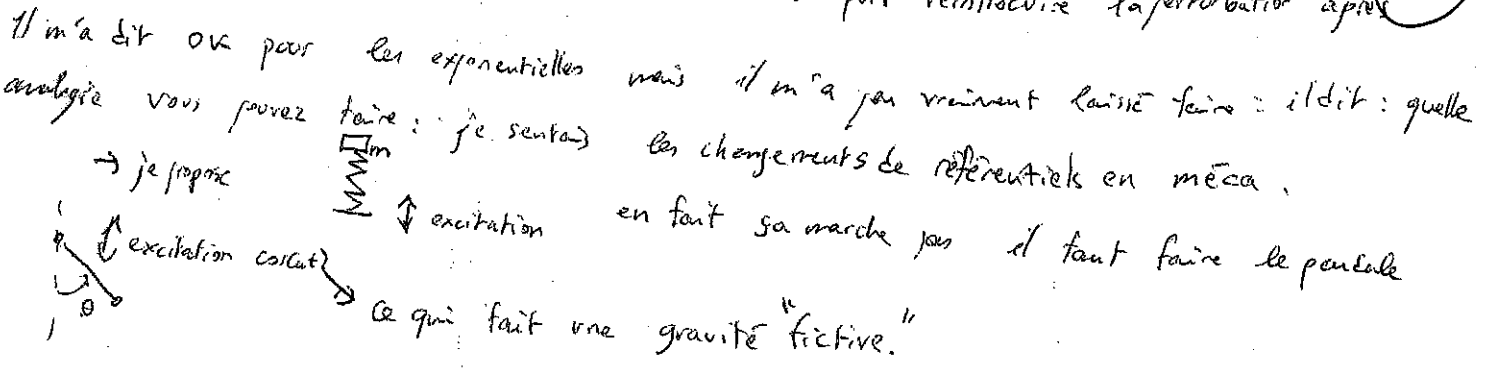 réintroduire la perturbation après
Il m'a dit OK pour les exponentielles mais il m'a pas vraiment laissé faire : il dit : quelle
analogie vous pouvez faire : je sentais les changements de référentiels en méca.
→ je propose
m
excitation
en fait ça marche pas il faut faire le pendule
excitation cos(ωt)
θ
ce qui fait une gravité "fictive."